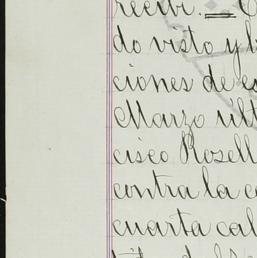 recibí.
do visto y
ciones de
Marzo últ
cisco Rosell
contra la c
cuarta cal